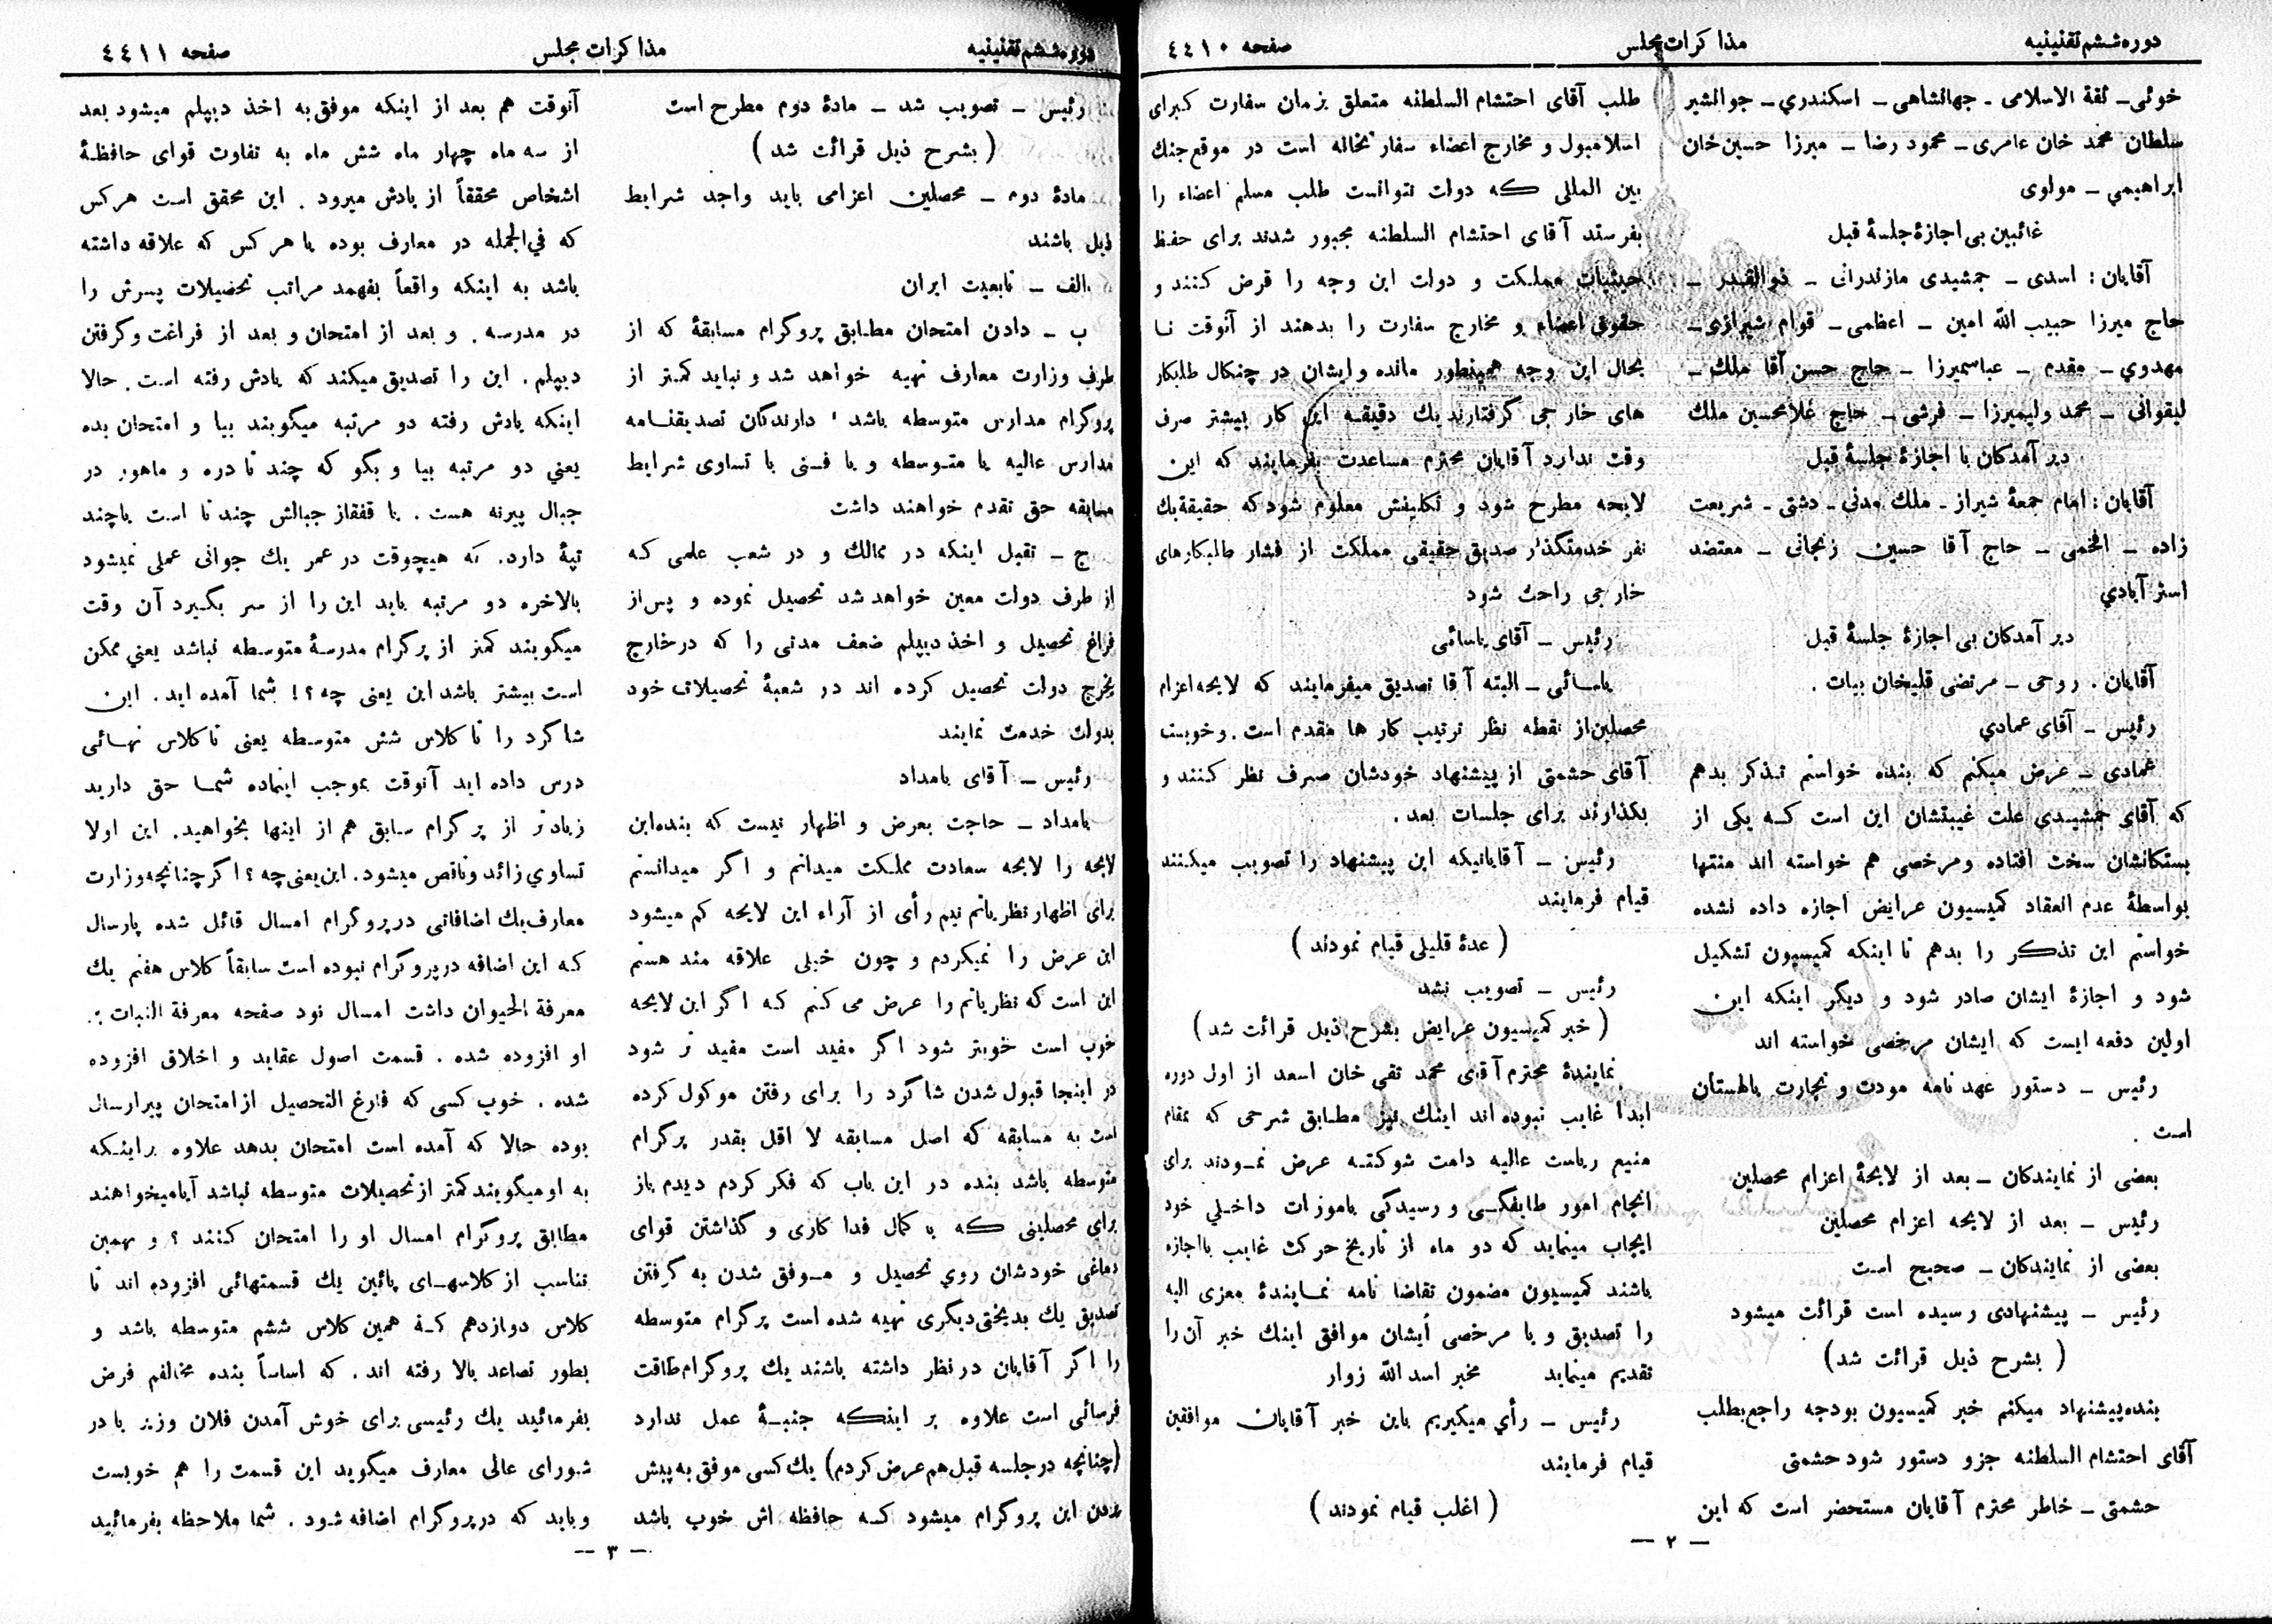 دوره ششم تقنینیه
مذاکرات مجلس
صفحه ٤٤١٠
خوئی ـ ثقة الاسلامی ـ جهانشاهی ـ اسکندري ـ جوانشیر
سلطان محمد خان عامری ـ محمود رضا ـ میرزا حسین خان
ابراهیمي ـ مولوی
غائبین بی اجازهٔ جلسهٔ قبل
آقایان : اسدی ـ جمشیدی مازندرانی ـ ذوالقدر ـ
حاج میرزا حبیب الله امین ـ اعظمی ـ قوام شیرازی ـ
مهدوي ـ مقدم ـ عباسمیرزا ـ حاج حسن آقا ملك ـ
لیقوانی ـ محمد ولیمیرزا ـ فرشی ـ حاج غلامحسین ملك
دیر آمدکان با اجازهٔ جلسهٔ قبل
آقایان : امام جمعهٔ شیراز ـ ملك مدنی ـ دشتی ـ شریعت
زاده ـ افخمی ـ حاج آقا حسین زنجانی ـ معتضد
استر آبادي
دیر آمدکان بی اجازهٔ جلسهٔ قبل
آقایان . روحی ـ مرتضی قلیخان بیات .
رئیس ـ آقای عمادي
عمادی ـ عرض میکنم که بنده خواستم تذکر بدهم
که آقای جمشیدي علت غیبتشان این است که یکی از
بستکانشان سخت افتاده ومرخصی هم خواسته اند منتها
بواسطهٔ عدم انعقاد کمیسیون عرایض اجازه داده نشده
خواستم این تذکر را بدهم تا اینکه کمیسیون تشکیل
شود و اجازهٔ ایشان صادر شود و دیگر اینکه این
اولین دفعه ایست که ایشان مرخصی خواسته اند
رئیس ـ دستور عهد نامه مودت و تجارت بالهستان
است .
بعضی از نمایندکان ـ بعد از لایحهٔ اعزام محصلین
رئیس ـ بعد از لایحه اعزام محصلین
بعضی از نمایندکان ـ صحیح است
رئیس ـ پیشنهادی رسیده است قرائت میشود
( بشرح ذیل قرائت شد )
بنده پیشنهاد میکنم خبر کمیسیون بودجه راجع بطلب
آقای احتشام السلطنه جزو دستور شود حشمتی
حشمتی ـ خاطر محترم آقایان مستحضر است که این
طلب آقای احتشام السلطنه متعلق بزمان سفارت کبرای
اسلامبول و مخارج اعضاء سفارتخانه است در موقع جنك
بین المللی که دولت نتوانست طلب مسلم اعضاء را
بفرستد آقای احتشام السلطنه مجبور شدند برای حفظ
حیثیات مملکت و دولت این وجه را قرض کنند و
حقوق اعضاء و مخارج سفارت را بدهند از آنوقت تا
بحال این وجه همینطور مانده وایشان در چنکال طلبکار
های خارجی گرفتارند یك دقیقه این کار بیشتر صرف
وقت ندارد آقایان محترم مساعدت بفرمایند که این
لایحه مطرح شود و تکلیفش معلوم شود که حقیقة یك
نفر خدمتگذار صدیق حقیقی مملکت از فشار طلبکارهای
خارجی راحت شود
رئیس ـ آقای یاسائی
یاسائی ـ البته آقا تصدیق میفرمایند که لایحه اعزام
محصلین از نقطه نظر ترتیب کار ها مقدم است . و خوبست
آقای حشمتی از پیشنهاد خودشان صرف نظر کنند و
بکذارند برای جلسات بعد .
رئیس ـ آقایانیکه این پیشنهاد را تصویب میکنند
قیام فرمایند
( عدهٔ قلیلی قیام نمودند )
رئیس ـ تصویب نشد
( خبر کمیسیون عرایض بشرح ذیل قرائت شد )
نمایندهٔ محترم آقای محمد تقی خان اسعد از اول دوره
ابداً غایب نبوده اند اینك نیز مطابق شرحی که بمقام
منیع ریاست عالیه دامت شوکته عرض نمودند برای
انجام امور طایفگی و رسیدگی بامورات داخلي خود
ایجاب مینماید که دو ماه از تاریخ حرکت غایب بااجازه
باشند کمیسیون مضمون تقاضا نامه نمایندهٔ معزی الیه
را تصدیق و با مرخصی أیشان موافق اینك خبر آن را
تقدیم مینماید مخبر اسدالله زوار
رئیس ـ رأي میگیریم باین خبر آقایان موافقین
قیام فرمایند
( اغلب قیام نمودند )
— ٢ —
دوره ششم تقنینیه
مذاکرات مجلس
صفحه ٤٤١١
رئیس ـ تصویب شد ـ مادهٔ دوم مطرح است
( بشرح ذیل قرائت شد )
مادهٔ دوم ـ محصلین اعزامی باید واجد شرایط
ذیل باشند
الف ـ تابعیت ایران
ب ـ دادن امتحان مطابق پروگرام مسابقهٔ که از
طرف وزارت معارف تهیه خواهد شد و نباید کمتر از
پروگرام مدارس متوسطه باشد ، دارندگان تصدیقنامه
مدارس عالیه یا متوسطه و یا فنی با تساوی شرایط
مسابقه حق تقدم خواهند داشت
ج ـ تقبل اینکه در ممالك و در شعب علمی که
از طرف دولت معین خواهد شد تحصیل نموده و پس از
فراغ تحصیل و اخذ دیپلم ضعف مدتی را که در خارج
بخرج دولت تحصیل کرده اند در شعبهٔ تحصیلات خود
بدولت خدمت نمایند
رئیس ـ آقای بامداد
بامداد ـ حاجت بعرض و اظهار نیست که بنده این
لایحه را لایحه سعادت مملکت میدانم و اگر میدانستم
برای اظهار نظریاتم نیم رأی از آراء این لایحه کم میشود
این عرض را نمیکردم و چون خیلی علاقه مند هستم
این است که نظریاتم را عرض می کنم که اگر این لایحه
خوب است خوبتر شود اگر مفید است مفید تر شود
در اینجا قبول شدن شاگرد را برای رفتن موکول کرده
است به مسابقه که اصل مسابقه لا اقل بقدر پرگرام
متوسطه باشد بنده در این باب که فکر کردم دیدم باز
برای محصلینی که با کمال فدا کاری و گذاشتن قوای
دماغی خودشان روي تحصیل و موفق شدن به گرفتن
تصدیق یك بدبختی دیگری تهیه شده است پرگرام متوسطه
را اگر آقایان در نظر داشته باشند یك پروگرام طاقت
فرسائی است علاوه بر اینکه جنبهٔ عمل ندارد
(چنانچه در جلسه قبل هم عرض کردم) یك کسی موفق به پیش
بردن این پروگرام میشود که حافظه اش خوب باشد
آنوقت هم بعد از اینکه موفق به اخذ دیپلم میشود بعد
از سه ماه چهار ماه شش ماه به تفاوت قوای حافظهٔ
اشخاص محققاً از یادش میرود . این محقق است هرکس
که في الجمله در معارف بوده یا هر کس که علاقه داشته
باشد به اینکه واقعاً بفهمد مراتب تحصیلات پسرش را
در مدرسه . و بعد از امتحان و بعد از فراغت وگرفتن
دیپلم . این را تصدیق میکند که یادش رفته است . حالا
اینکه یادش رفته دو مرتبه میگویند بیا و امتحان بده
یعني دو مرتبه بیا و بگو که چند تا دره و ماهور در
جبال پیرنه هست . یا قفقاز جبالش چند تا است یاچند
تپهٔ دارد . که هیچوقت در عمر یك جوانی عملی نمیشود
بالاخره دو مرتبه باید این را از سر بگیرد آن وقت
میگویند کمتر از پرگرام مدرسهٔ متوسطه نباشد یعني ممکن
است بیشتر باشد این یعنی چه ؟ ! شما آمده اید . این
شاگرد را تا کلاس شش متوسطه یعنی تا کلاس نهائی
درس داده اید آنوقت بموجب اینماده شما حق دارید
زیادتر از پرگرام سابق هم از اینها بخواهید . این اولا
تساوي زائد وناقص میشود . این یعنی چه ؟ اگر چنانچه وزارت
معارف یك اضافاتی در پروگرام امسال قائل شده پارسال
که این اضافه در پروگرام نبوده است سابقاً کلاس هفتم یك
معرفة الحیوان داشت امسال نود صفحه معرفة النبات بـ
او افزوده شده . قسمت اصول عقاید و اخلاق افزوده
شده . خوب کسی که فارغ التحصیل از امتحان پیرارسال
بوده حالا که آمده است امتحان بدهد علاوه بر اینکه
به او میگویند کمتر از تحصیلات متوسطه نباشد آیا میخواهند
مطابق پروگرام امسال او را امتحان کنند ؟ و بهمین
تناسب از کلاسهای پائین یك قسمتهائی افزوده اند تا
کلاس دوازدهم که همین کلاس ششم متوسطه باشد و
بطور تصاعد بالا رفته اند . که اساساً بنده مخالفم فرض
بفرمائید یك رئیسی برای خوش آمدن فلان وزیر یا در
شورای عالی معارف میگوید این قسمت را هم خوبست
و باید که در پروگرام اضافه شود . شما ملاحظه بفرمائید
— ٣ —